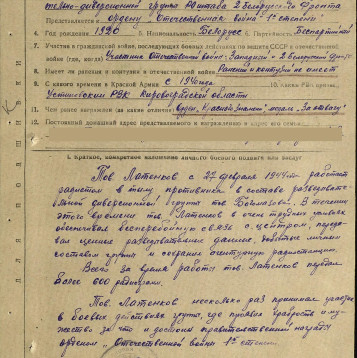 тельно-диверсионной группы РО штаба 2 Белорусского Фронта
Представляется к ордену „Отечественная война" 1й степени
4. Год рождения 1920 5. Национальность Белорус 6. Партийность Беспартийный
7. Участие в гражданской войне, последующих боевых действиях по защите СССР и отечественной
войне (где, когда) Участник Отечественной войны Западный и 2 Белорусский фр.
8. Имеет ли ранения и контузии в отечественной войне Ранений и контузий не имеет
9. С какого времени в Красной Армии С 1940 года 10. Каким РВК призван
Устиновским РВК Кировоградской области
11. Чем ранее награжден (за какие отличия) Орден „Красное Знамя", медаль „За отвагу"
12. Постоянный домашний адрес представляемого к награждению и адрес его семьи
I. Краткое, конкретное изложение личного боевого подвига или заслуг
Тов. Латенков с 27 февраля 1944 г. работает
радистом в тылу противника в составе разведыва-
тельной диверсионной группы тов. В течении
этого времени тов. Латенков в очень трудных условиях
обеспечивал бесперебойную связь с центром, переда-
вая ценные разведывательные данные, добытые личным
составом группы и сохранил агентурную радиостанцию.
Всего за время работы тов. Латенков передал
более 600 радиограмм.
Тов. Латенков несколько раз принимал участие
в боевых действиях группы, где проявил храбрость и му-
жество за что и достоин правительственной награды
орденом „Отечественной войны" 1й степени.